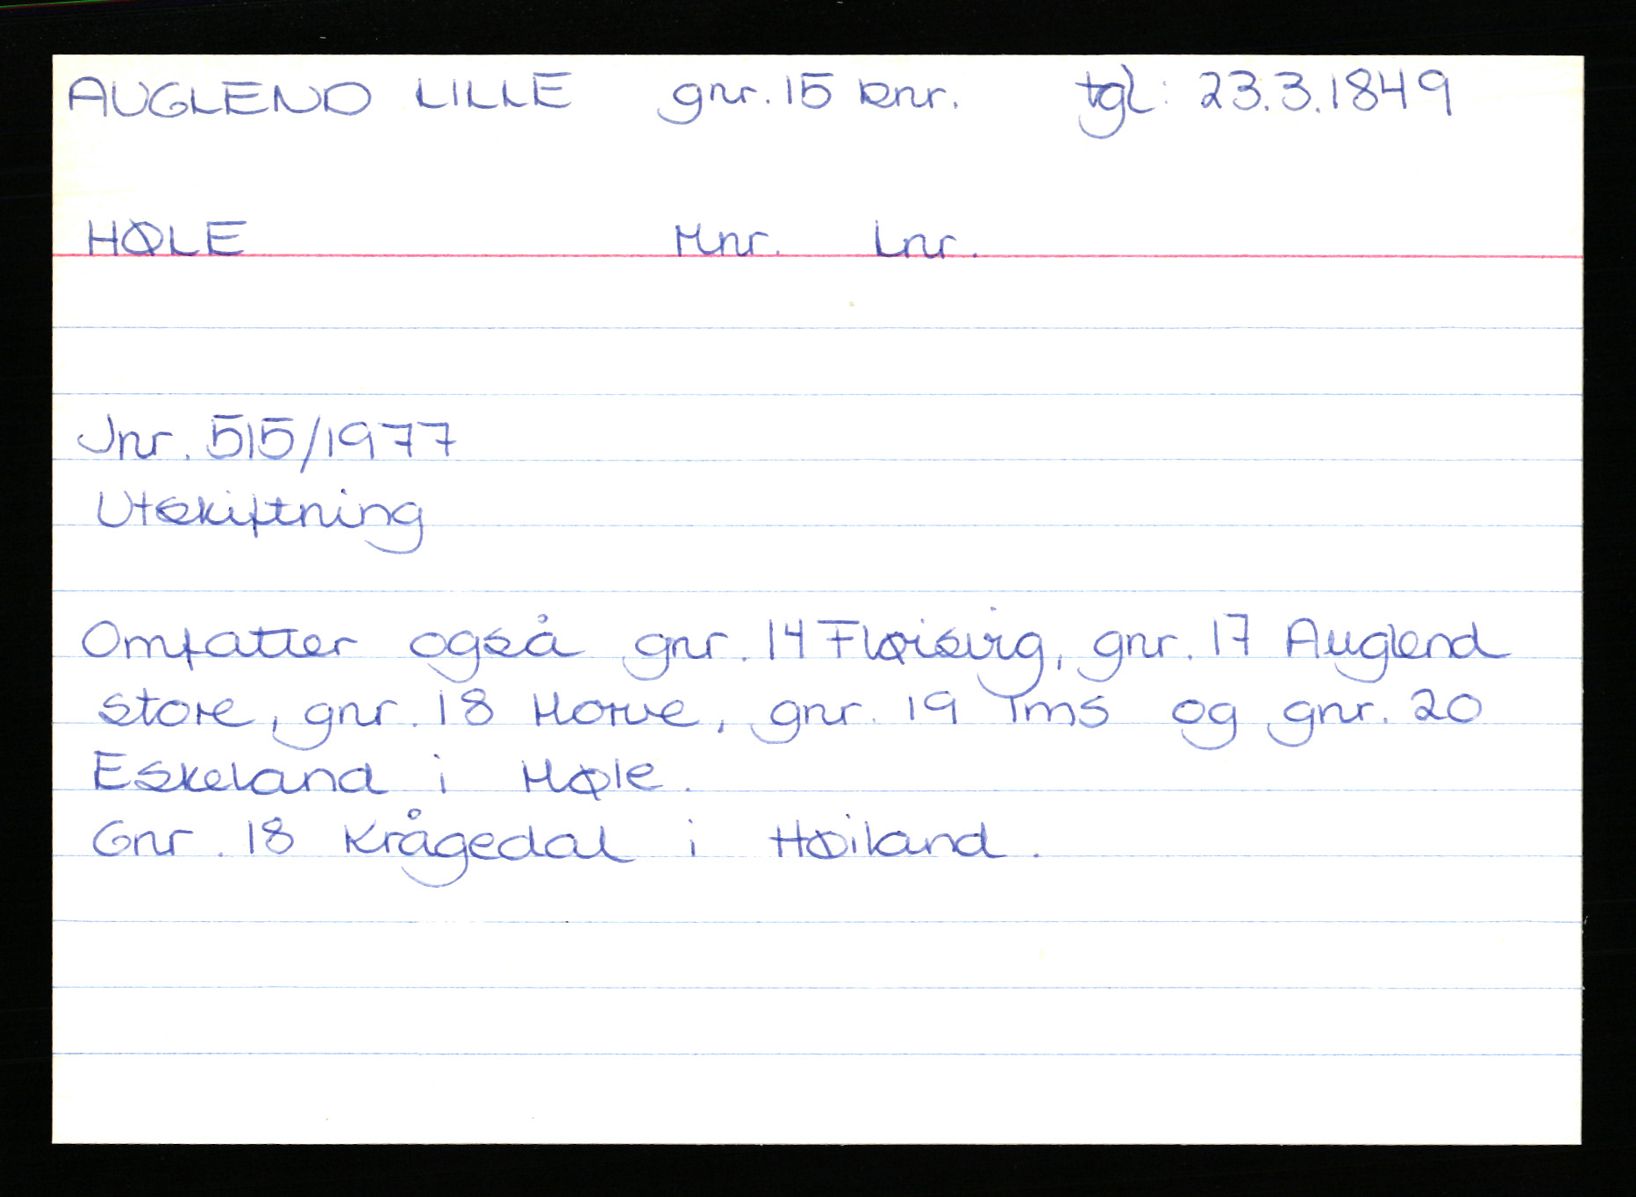 AUGLEND LILLE gnr. 15 bnr. tgl: 23.3.1849
HØLE Mnr. Lnr.
Jnr. 515/1977
Utskiftning
Omfatter også gnr. 14 Fløisvig, gnr. 17 Auglend
store, gnr. 18 Horve, gnr. 19 Ims og gnr. 20
Eskeland i Høle.
Gnr. 18 Krågedal i Høiland.